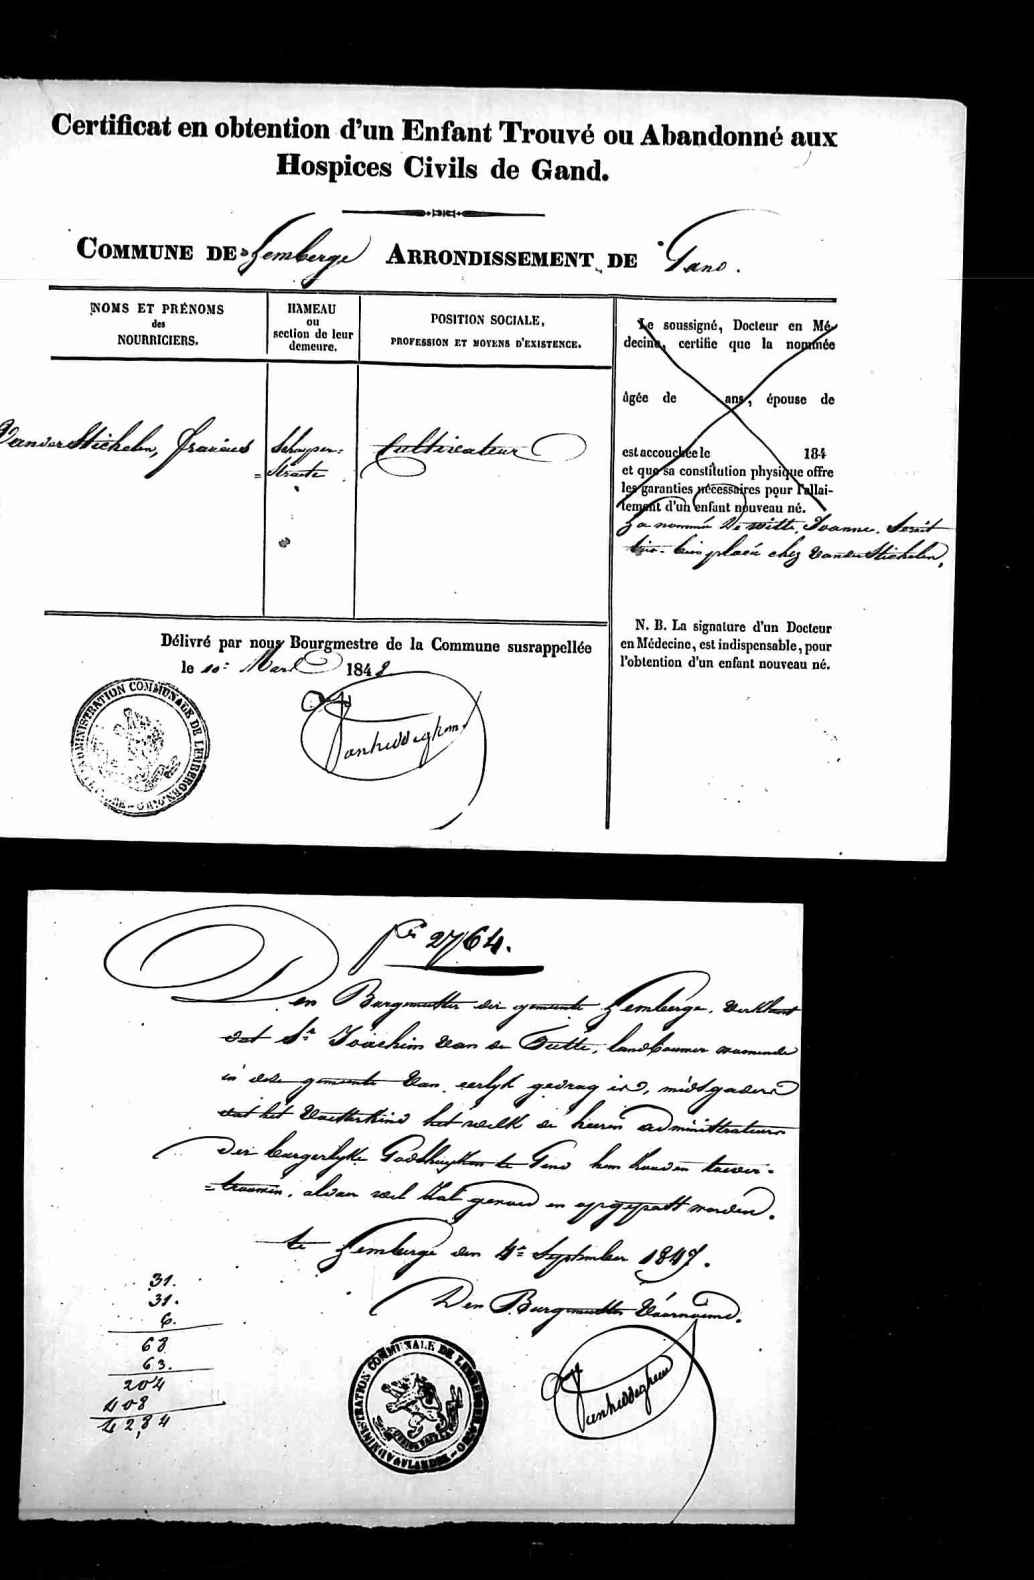 Certificat en obtention d'un Enfant Trouvé ou Abandonné aux
Hospices Civils de Gand.
COMMUNE DE Lemberge ARRONDISSEMENT DE Gand.
NOMS ET PRÉNOMS
des
NOURRICIERS.
HAMEAU
ou
section de leur
demeure.
POSITION SOCIALE,
PROFESSION ET MOYENS D'EXISTENCE.
Vander Stichelen, francies
Schaypen=
=Straete
Cultivateur
Le soussigné, Docteur en Mé-
decine, certifie que la nommée
âgée de ans, épouse de
est accouchée le 184
et que sa constitution physique offre
les garanties nécessaires pour l'allai-
tement d'un enfant nouveau né.
La nommée De Witte, Joanna. Serait
bien placée chez Vander Stichelen,
N. B. La signature d'un Docteur
en Médecine, est indispensable, pour
l'obtention d'un enfant nouveau né.
Délivré par nous Bourgmestre de la Commune susrappellée
le 10: Mars 1848
ADMINISTRATION COMMUNALE DE LEMBERGEN
Vanheddeghem
2764.
Den Burgmeester der gemeente Lemberge, verklaert
dat Sr. Joachim Van de Putte, landbouwer woonende
in dese gemeente van eerlyk gedrag is, midsgaders
dat het Voesterkind het welk de heeren administrateurs
der burgerlyke Godshuyzen te Gend hem houden toever-
=trouwen, aldaer wel zal genoerd en opgepast worden.
te Lemberge den 4e September 1847.
Den Burgmeester Voornoemd.
31.
31.
6.
68
63.
204
408
4284
ADMINISTRATION COMMUNALE DE
Vanheddeghem